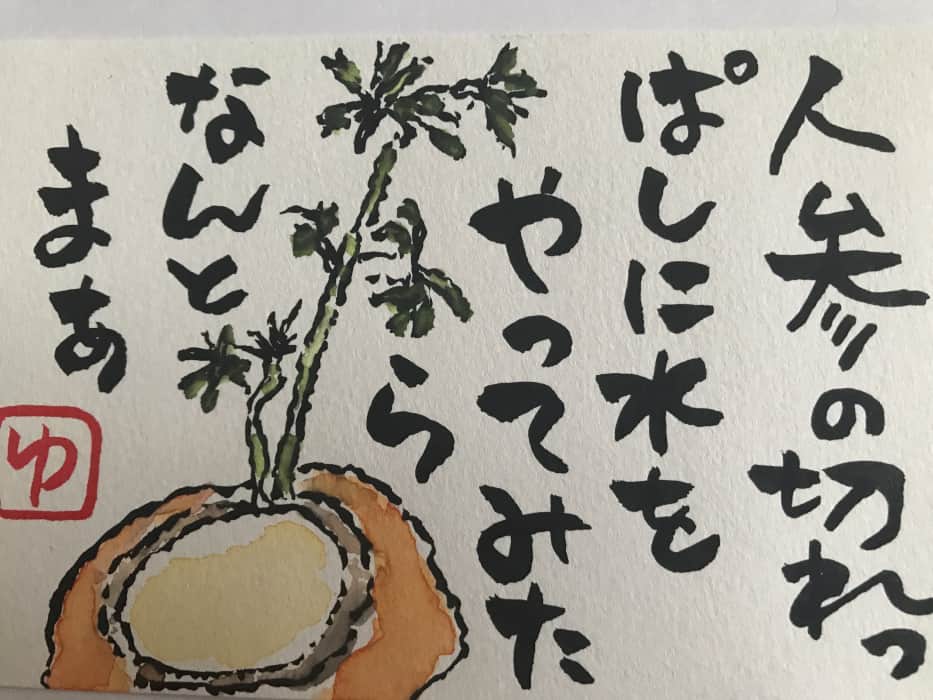 人参の切れっ
ぱしに水を
やってみた
ら
なんと
まぁ
ゆ